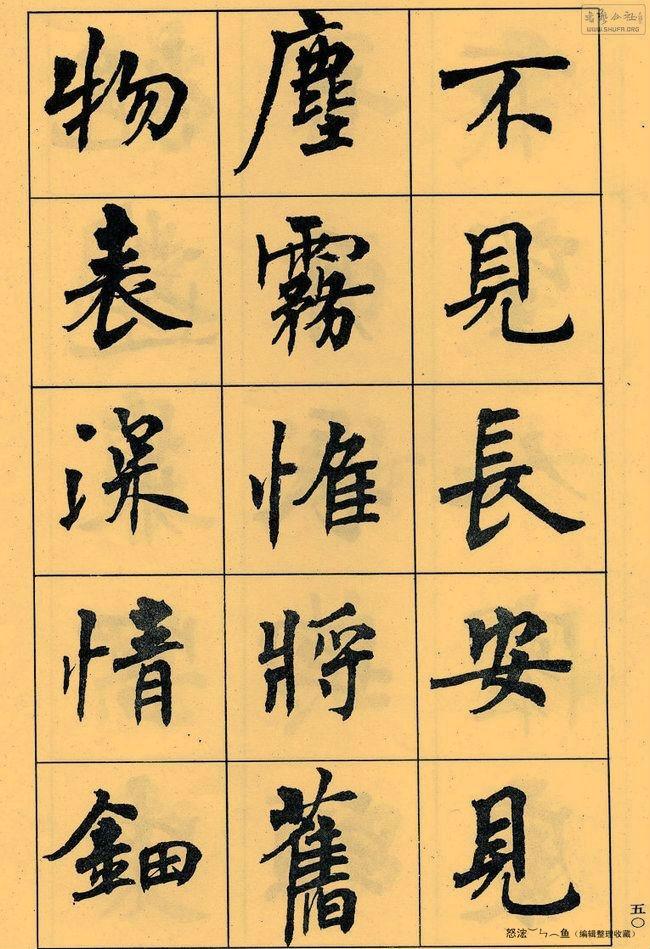 不見長安見
塵霧惟將舊
物表深情鈿
五〇
WWW.SHUFA.ORG
(编辑整理收藏)